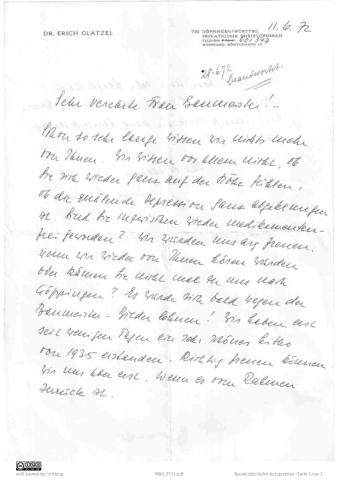 DR. ERICH GLATZEL
732 GÖPPINGEN/WÜRTTG.
PRIVATKLINIK CHRISTOPHSBAD
11.6.72
28.6.72
beantwortet.
Sehr verehrte Frau Baumeister! –
Schon so sehr lange wissen wir nichts mehr
von Ihnen. Wir wissen vor allem nicht, ob
Sie sich wieder ganz auf der Höhe fühlen,
ob die quälende Depression ganz abgeklungen
ist. Sind Sie inzwischen wieder medikamenten-
frei geworden? Wir würden uns arg freuen,
wenn wir wieder von Ihnen hören würden
oder können Sie nicht mal zu uns nach
Göppingen? Es würde sich bald wegen der
Baumeister-Bilder lohnen! Wir haben erst
seit wenigen Tagen ein sehr schönes
von 1935 erstanden. Richtig freuen können
wir uns aber erst, wenn es vom Rahmen
zurück ist.
willi baumeister stiftung
Baumeister-Dritte Autographen | Seite 1 von 2